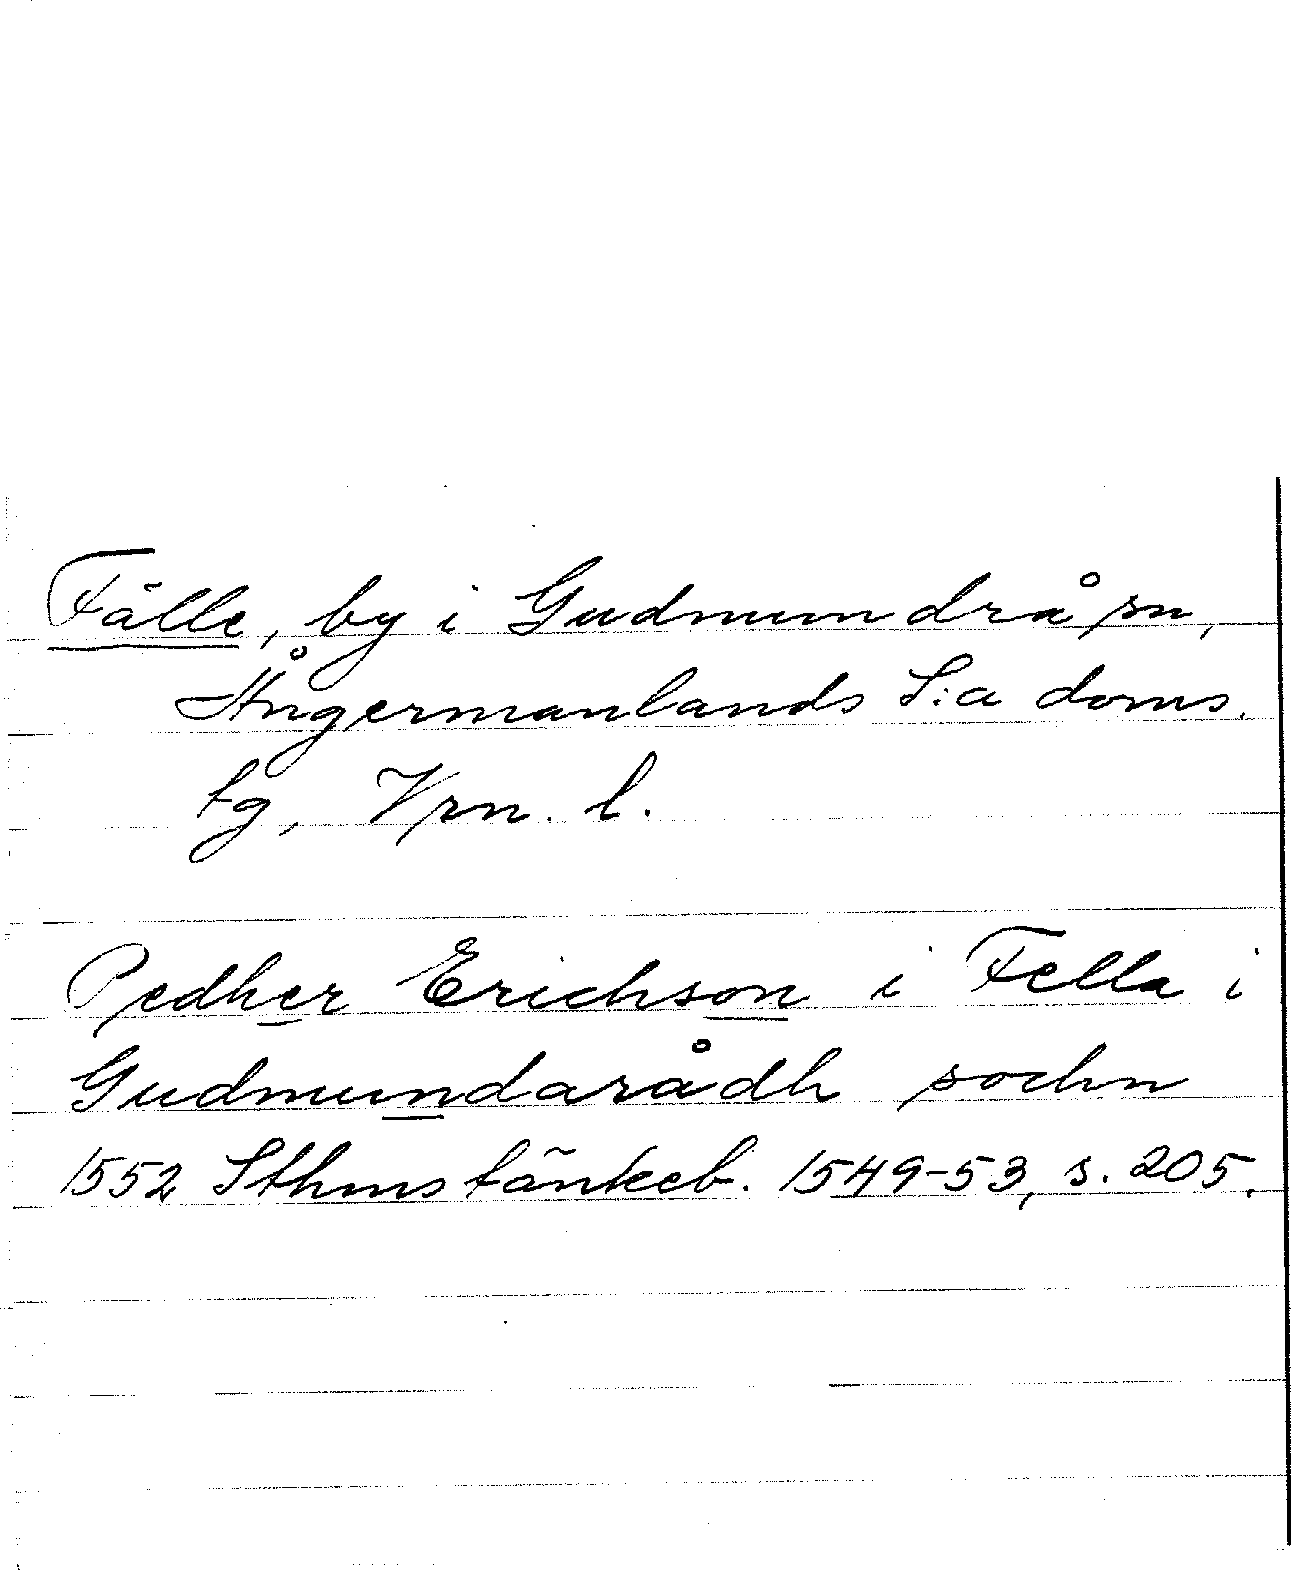 Fälle, by i Gudmundrå sn,
Ångermanlands S:a doms.
tg, Vrn. l.
Pedher Erichson i Fella i
Gudmundarådh sochn
1552 Sthms tänkeb. 1549-53, s. 205.